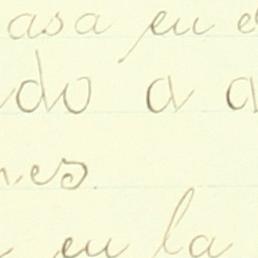 casa en e
ndo a a
nes.
en la